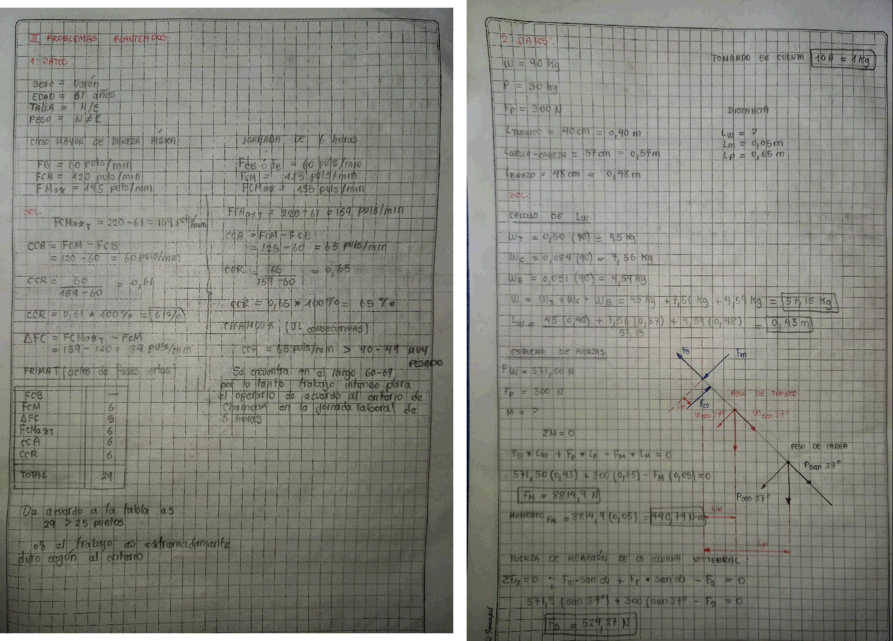 II PROBLEMAS PLANTEADOS:
1. DATOS:
SEXO = Varón
EDAD = 61 años
TALLA = N/E
PESO = N≠E
CICLO MAYOR DE DUREZA FÍSICA
FB = 60 puls/min
FCM = 120 puls/min
F Max = 145 puls/min
SOL:
FCMaxT = 220-61 = 159 puls/min
CCA = FCM - FCB
= 120-60 = 60 puls/min
CCR = 60 / 159-60 = 0,61
CCR = 0,61 * 100% = 61%
ΔFC = FCMaxT - FCM
= 159-120 = 39 puls/min
FRIMAT
FCB —
FCM 6
ΔFC 6
FCMaxT 6
CCA 6
CCR 6
TOTAL 29
De acuerdo a la tabla es
29 > 25 puntos
el trabajo es extremadamente
duro según el criterio
JORNADA DE 6 horas
FCB ó FB = 60 puls/min
FCM = 115 puls/min
FCMax = 135 puls/min
FCMaxT = 220-61 = 159 puls/min
CCA = FCM - FCB
= 125-60 = 65 puls/min
CCR = 65 / 159-60 = 0,65
CCR = 0,65 * 100% = 65%
CHAMOUX (JL CONSECUTIVAS)
CCA = 65 puls/min > 40-49 MUY
PESADO
Se encuentra en el rango 60-69,
por lo tanto trabajo intenso para
el operario de acuerdo al criterio de
Chamoux en la jornada laboral de
6 horas
2. DATOS:
TOMANDO EN CUENTA 10N = 1Kg
W = 90 Kg
P = 30 kg
FP = 300 N
DISTANCIA
LTRONCO = 40cm = 0,40 m
LW = ?
LM = 0,05m
LCUELLO-CABEZA = 57cm = 0,57m
LP = 0,65 m
LBRAZO = 48cm = 0,48m
SOL:
CALCULO DE LW
WT = 0,50 (90) = 45 Kg
WC = 0,084 (90) = 7,56 Kg
WB = 0,051 (90) = 4,59 Kg
W = WT + WC + WB = 45 Kg + 7,56 Kg + 4,59 Kg = 57,15 Kg
LW = 45 (0,40) + 7,56 (0,57) + 4,59 (0,48) / 57,15 = 0,43 m
ESQUEMA DE FUERZAS
FW = 571,50 N
FP = 300 N
M = ?
ΣM = 0
FW * LW + FP * LP - FM * LM = 0
571,50 (0,43) + 300 (0,65) - FM (0,05) = 0
FM = 8814,9 N
MOMENTO FM = 8814,9 (0,05) = 440,74 N·m
FS
FM
PESO DE TRONCO
PESO DE CARGA
P sen 37°
P cos 37°
LW
LP
FUERZA DE REACCIÓN DE LA COLUMNA VERTEBRAL:
ΣFX = 0 ; FW·sen α + FP * sen α - FS = 0
571,5 (sen 37°) + 300 (sen 37° - FS = 0
FS = 524,27 N